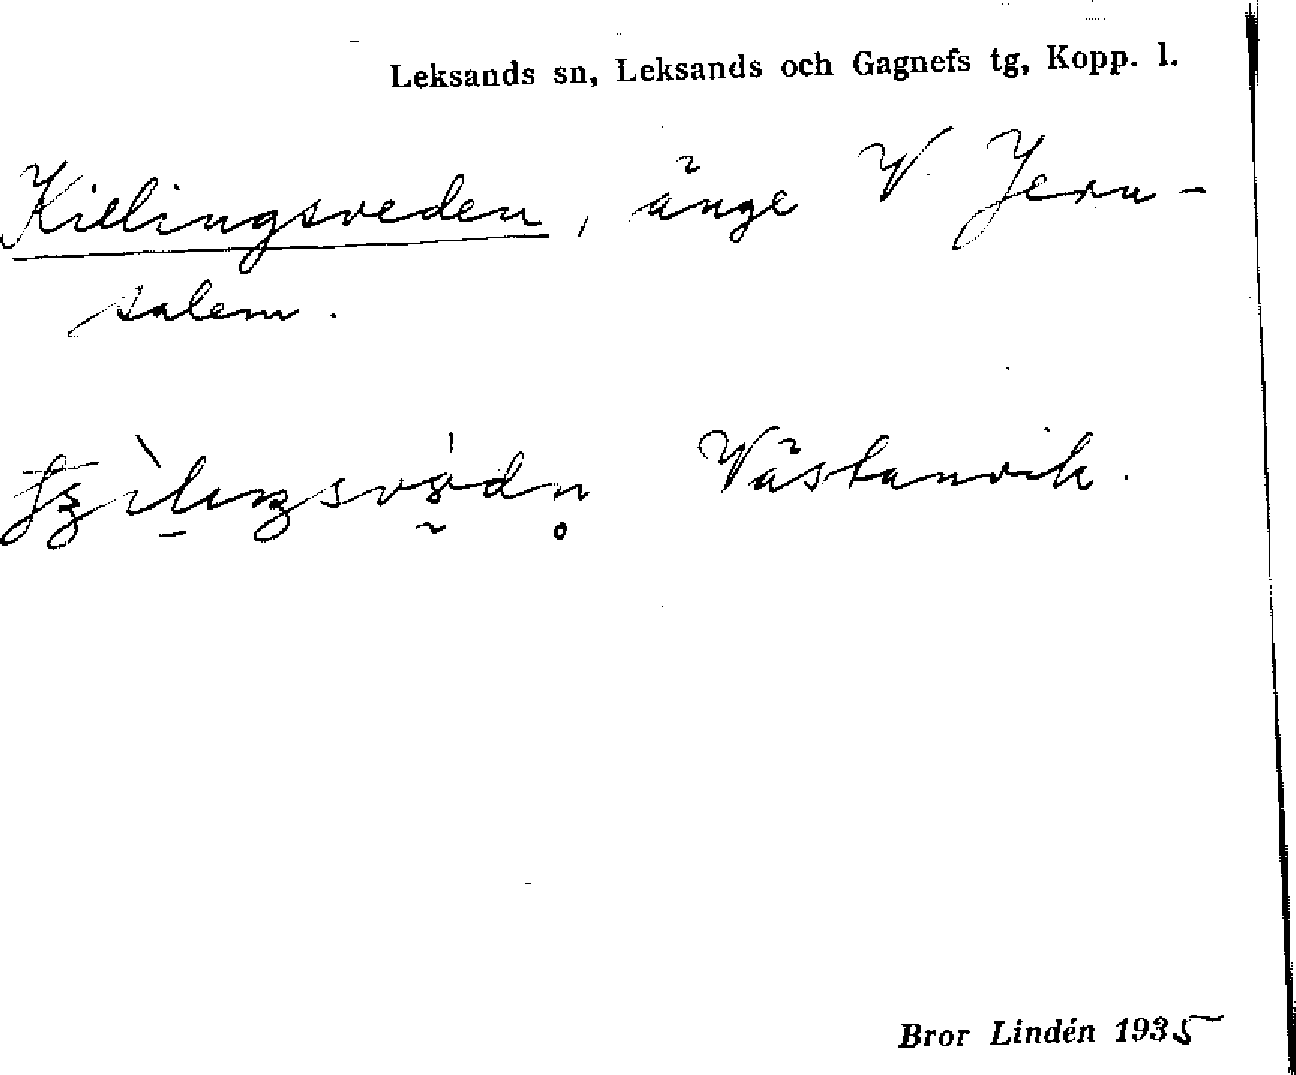 Leksands sn, Leksands och Gagnefs tg, Kopp. l.
Killingsveden, änge V. Jeru-
salem.
Västanvik.
Bror Lindén 1935